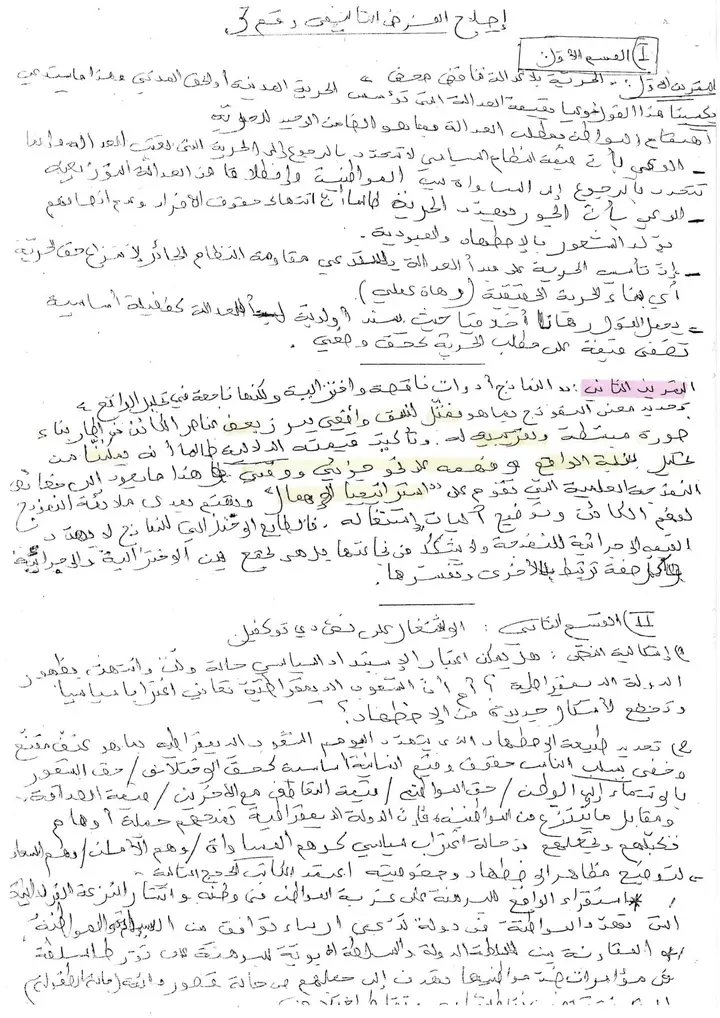 إصلاح الفرض التأليفي رقم 3
I القسم الأول
التمرين الأول: .. الحرية بلا عدالة تناقض محض "
يكسبنا هذا القول الوعي بقيمة العدالة التي تؤسس الحرية المدنية أو الحق المدني وهذا ما يستدعي
اهتمام المواطن بمطلب العدالة بما هو الضامن الوحيد للحرية
- الوعي بأن قيمة النظام السياسي لا تتحدد بالرجوع إلى الحرية التي تغيب العدالة وإنما
تتحدد بالرجوع إلى المساواة بين المواطنين وانطلاقا من العدالة التوزيعية
- الوعي بأن الجور يهدد الحرية طالما أن انتهاك حقوق الأفراد وعدم انصافهم
يولد الشعور بالإضطهاد والعبودية .
- إن تأسيس الحرية على مبدأ العدالة يستدعي مقاومة النظام الجائر لانتزاع حق الحرية
أي بناء الحرية الحقيقية (رهان عملي).
- يجعل القول رهانا أخلاقيا حيث يسند أولوية لمبدأ العدالة كفضيلة أساسية
تضفي قيمة على مطلب الحرية كحق وضعي .
التمرين الثاني : .. النماذج أدوات ناقصة واختزالية ولكنها ناجعة في تدبر الواقع "
تحديد معنى النموذج بما هو تمثل لنسق واقعي يبرز بعض عناصر الكائن في إطار بناء
صورة مبسطة وتقريبية له . وتأكيد قيمته الدلالية طالما أنه يمكننا من
تحليل الواقع وفهمه على نحو جزئي ووقتي هذا ما يعود إلى فعالية
النمذجة العلمية التي تقوم على "استراتيجيا الإهمال" وتهتم بمدى ملائمة النموذج
لفهم الكائن وتوضيح آليات إشتغاله . فالطابع الاختزالي للنماذج لا يهدد
القيمة الإجرائية للنمذجة ولا يشكك في نجاعتها بل هو يجمع بين الاختزالية والإجرائية
وكل صفة ترتبط بالأخرى وتفسرها .
II القسم الثاني : الاشتغال على نص دي توكفيل
1) إشكالية النص : هل يمكن اعتبار الإستبداد السياسي حالة ولّت وانتهت بظهور
الدولة الديمقراطية ؟ أم أن الشعوب الديمقراطية تعاني اغترابا سياسيا
وتخضع لأشكال جديدة من الإضطهاد؟
2) تحديد طبيعة الإضطهاد الذي يتهدد اليوم الشعوب الديمقراطية بما هو عنف مقنّع
وخفي يسلب الناس حقوق وقيم إنسانية أساسية كحق الاختلاف / حق الشعور
بالإنتماء إلى الوطن / حق المواطنة / قيمة التعاطف مع الآخرين / قيمة الصداقة.
ومقابل ما ينتزع من المواطنين فإن الدولة الديمقراطية تمنحهم جملة أوهام
تكبلهم وتجعلهم في حالة اغتراب سياسي كوهم المساواة / وهم الأمان / وهم السعادة
- لتوضيح مظاهر الإضطهاد وخصوصيته اعتمد الكاتب الحجج التالية :
* استقراء الواقع للبرهنة على غربة المواطن في وطنه وانتشار النزعة الفردانية
التي تهدد المواطنة في دولة تدعي إرساء توافق بين السيادة والمواطنة
* المقارنة بين سلطة الدولة والسلطة الأبوية للبرهنة على تورط السلطة
في مؤامرات ضد مواطنيها تهدف إلى جعلهم في حالة قصور دائم (حالة الطفولة)